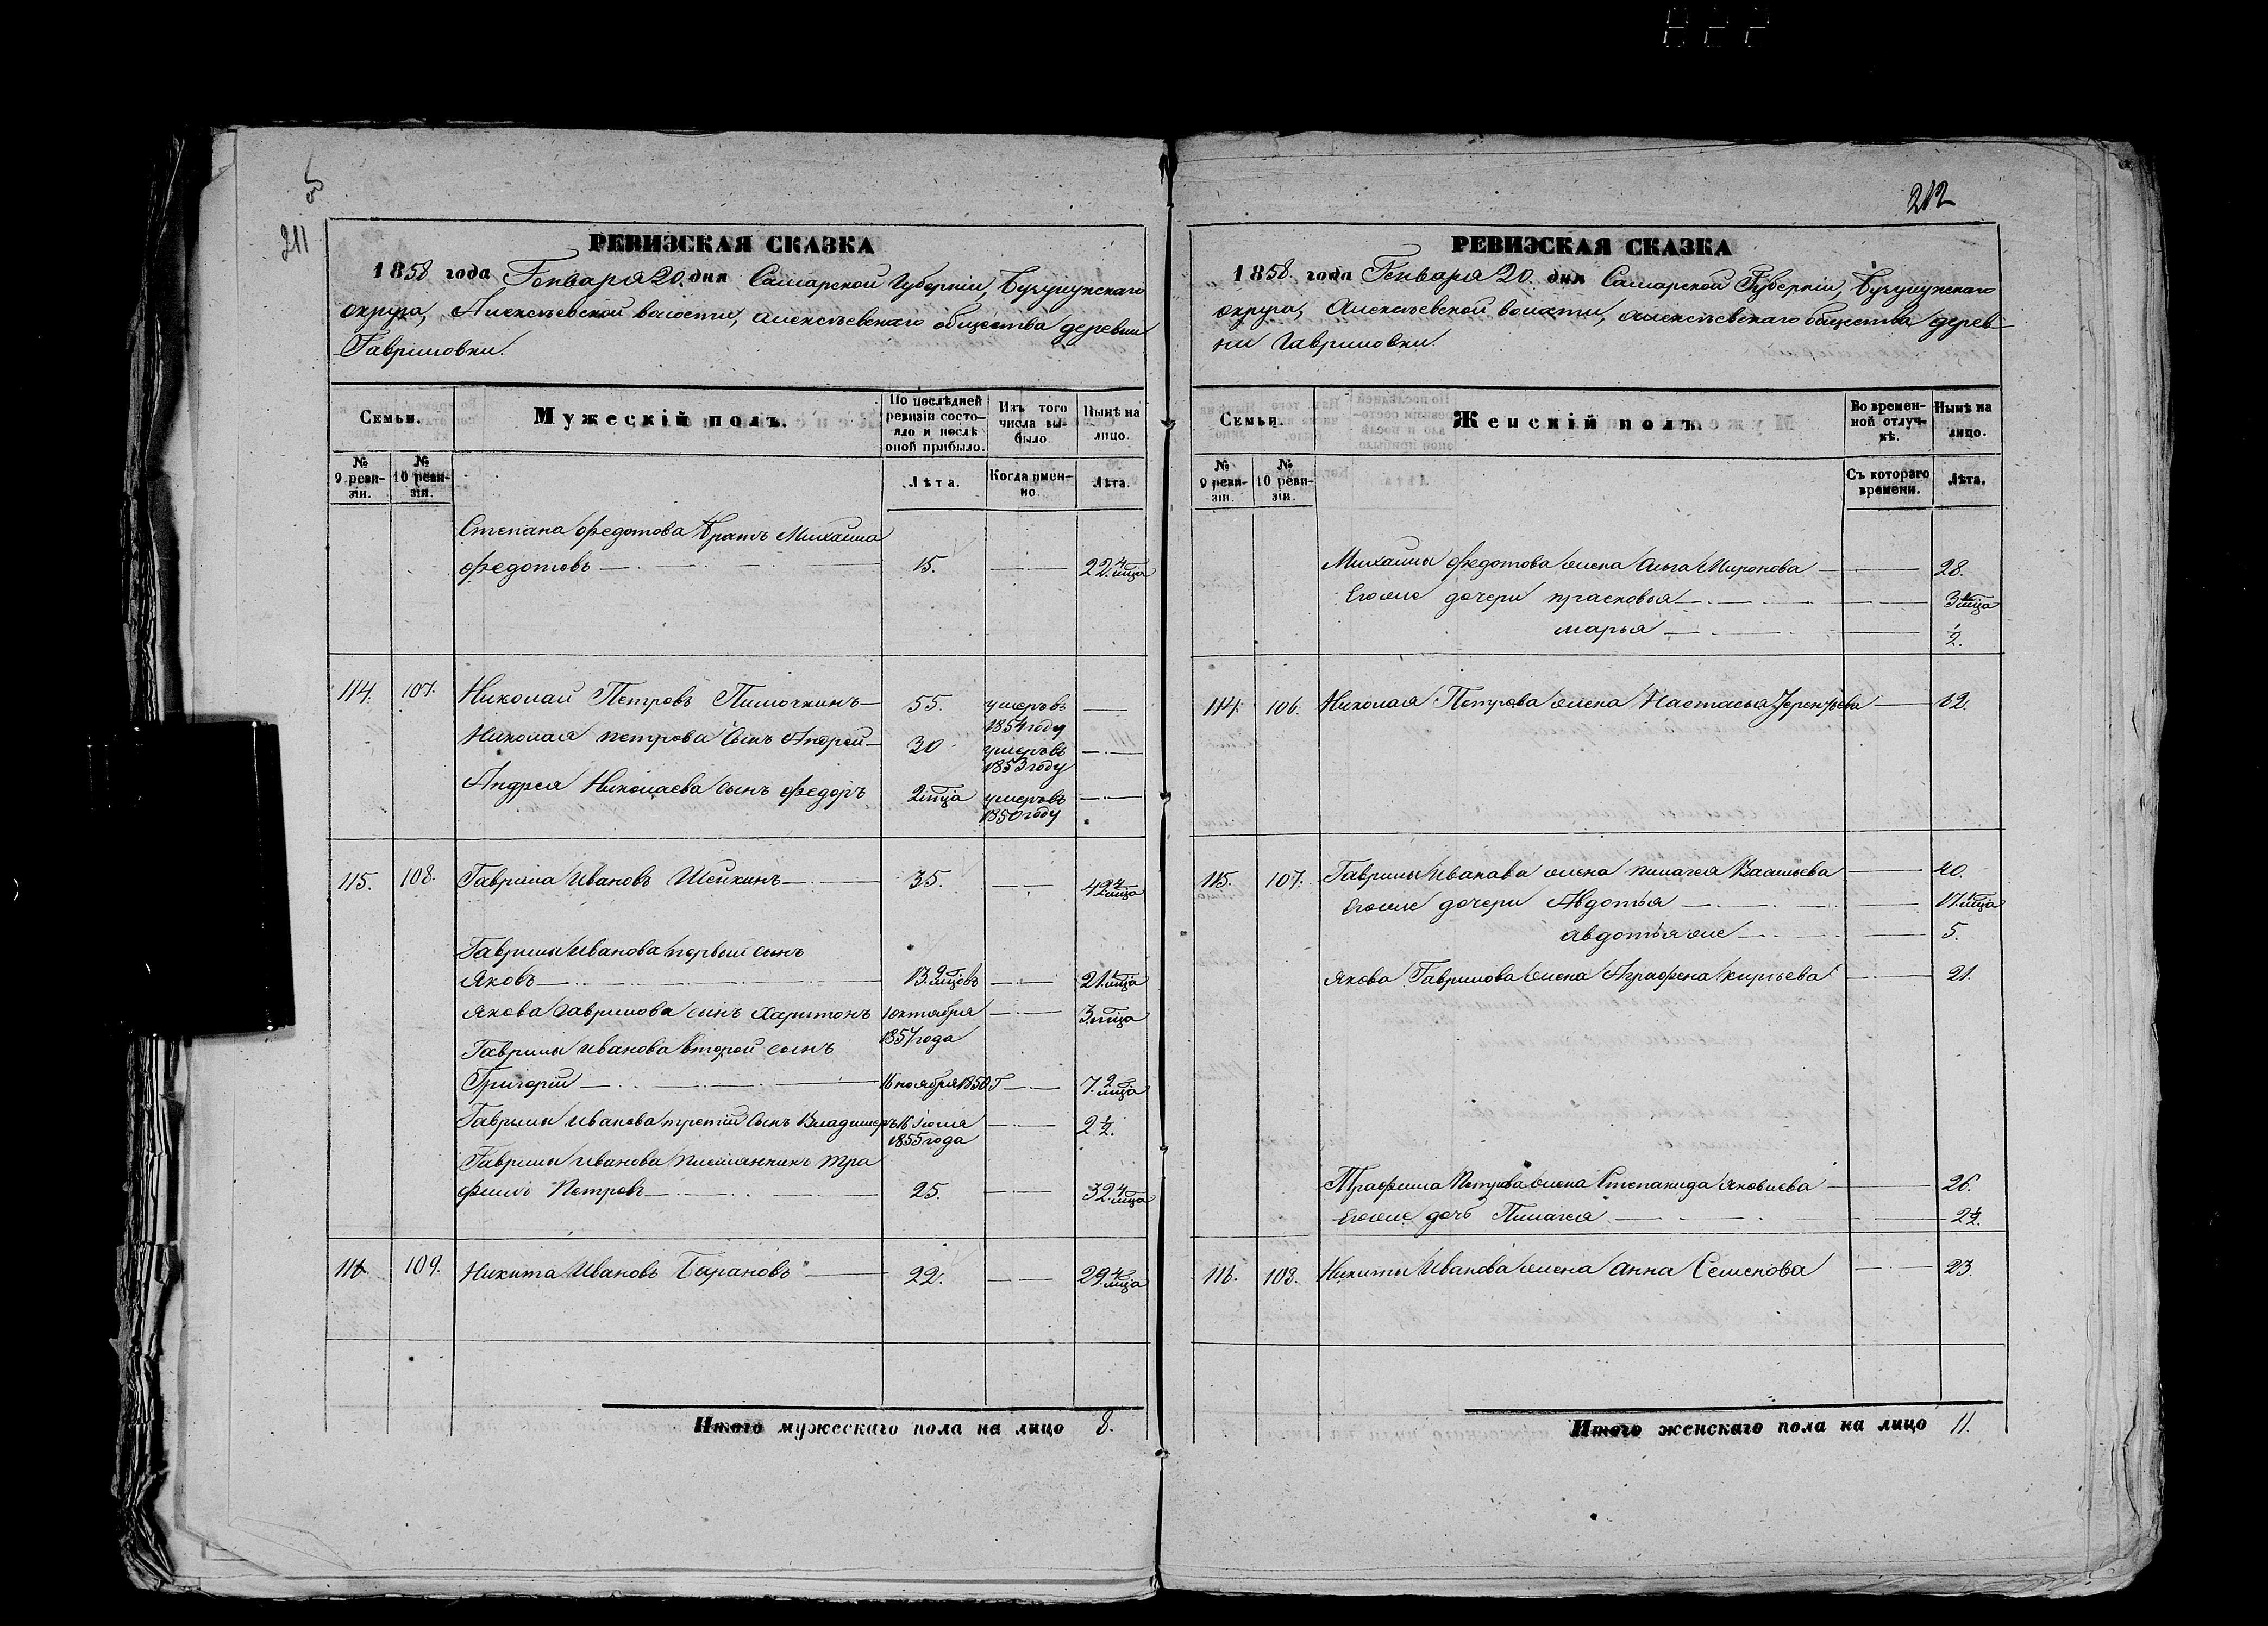 211
РЕВИЗСКАЯ СКАЗКА
1858 года Генваря 20. дня Самарской Губерніи, Бузулукскаго
округа, Алексѣевской волости, Алексѣевскаго общества деревни
Гавриловки.
Семьи.
Мужескій полъ.
По послѣдней ревизіи состояло и послѣ оной прибыло.
Изъ того числа выбыло.
Нынѣ на лицо.
№ 9 ревизіи.
№ 10 ревизіи.
Лѣта.
Когда именно.
Лѣта.
Степана Федотова братъ Михаила
Федотовъ 15. 22. 4 мца
114. 107. Николай Петровъ 55. умеръ въ 1854 году
Николая Петрова сынъ Андрей 30 умеръ въ 1853 году
Андрея Николаева сынъ Федоръ 2 мца умеръ въ 1850 году
115. 108. Гаврила Ивановъ Шейкинъ 35. 42 4 мца
Гаврилы Иванова первый сынъ
Яковъ 13. 9 мцовъ 21. мца
Якова Гаврилова сынъ Харитонъ 1 октября 1857 года 3 мца
Гаврилы Иванова второй сынъ
Григорій 16 ноября 1850 Г 7. 2 мца
Гаврилы Иванова третій сынъ Владимеръ 16 Іюля 1855 года 2 1/2.
Гаврилы Иванова племянникъ Тра
фимъ Петровъ 25. 32. 4 мца
116. 109. Никита Ивановъ Барановъ 22. 29. 4 мца
Итого мужескаго пола на лицо 8.
212
РЕВИЗСКАЯ СКАЗКА
1858. года Генваря 20. дня Самарской Губерніи, Бузулукскаго
округа, Алексѣевской волости, Алексѣевскаго общества дерев
ни Гавриловки.
Семьи.
Женскій полъ.
Во временной отлучкѣ.
Нынѣ на лицо.
№ 9 ревизіи.
№ 10 ревизіи.
Съ котораго времени.
Лѣта.
Михаилы Федотова жена Ольга Миронова 28.
Егоже дочери Прасковья 3 мца
Марья 1/2.
114. 106. Николая Петрова жена Настасья Терентьева 62.
115. 107. Гаврилы Иванава жена Пилагея Васильева 40.
Егоже дочери Авдотья 17. мца
Авдотья же 5.
Якова Гаврилова жена Аграфена 21.
Трафима Петрова жена Степанида Яковлева 26.
Егоже дочь Пилагея 2 1/2.
116. 108. Никиты Иванова жена Анна Семенова 23.
Итого женскаго пола на лицо 11.